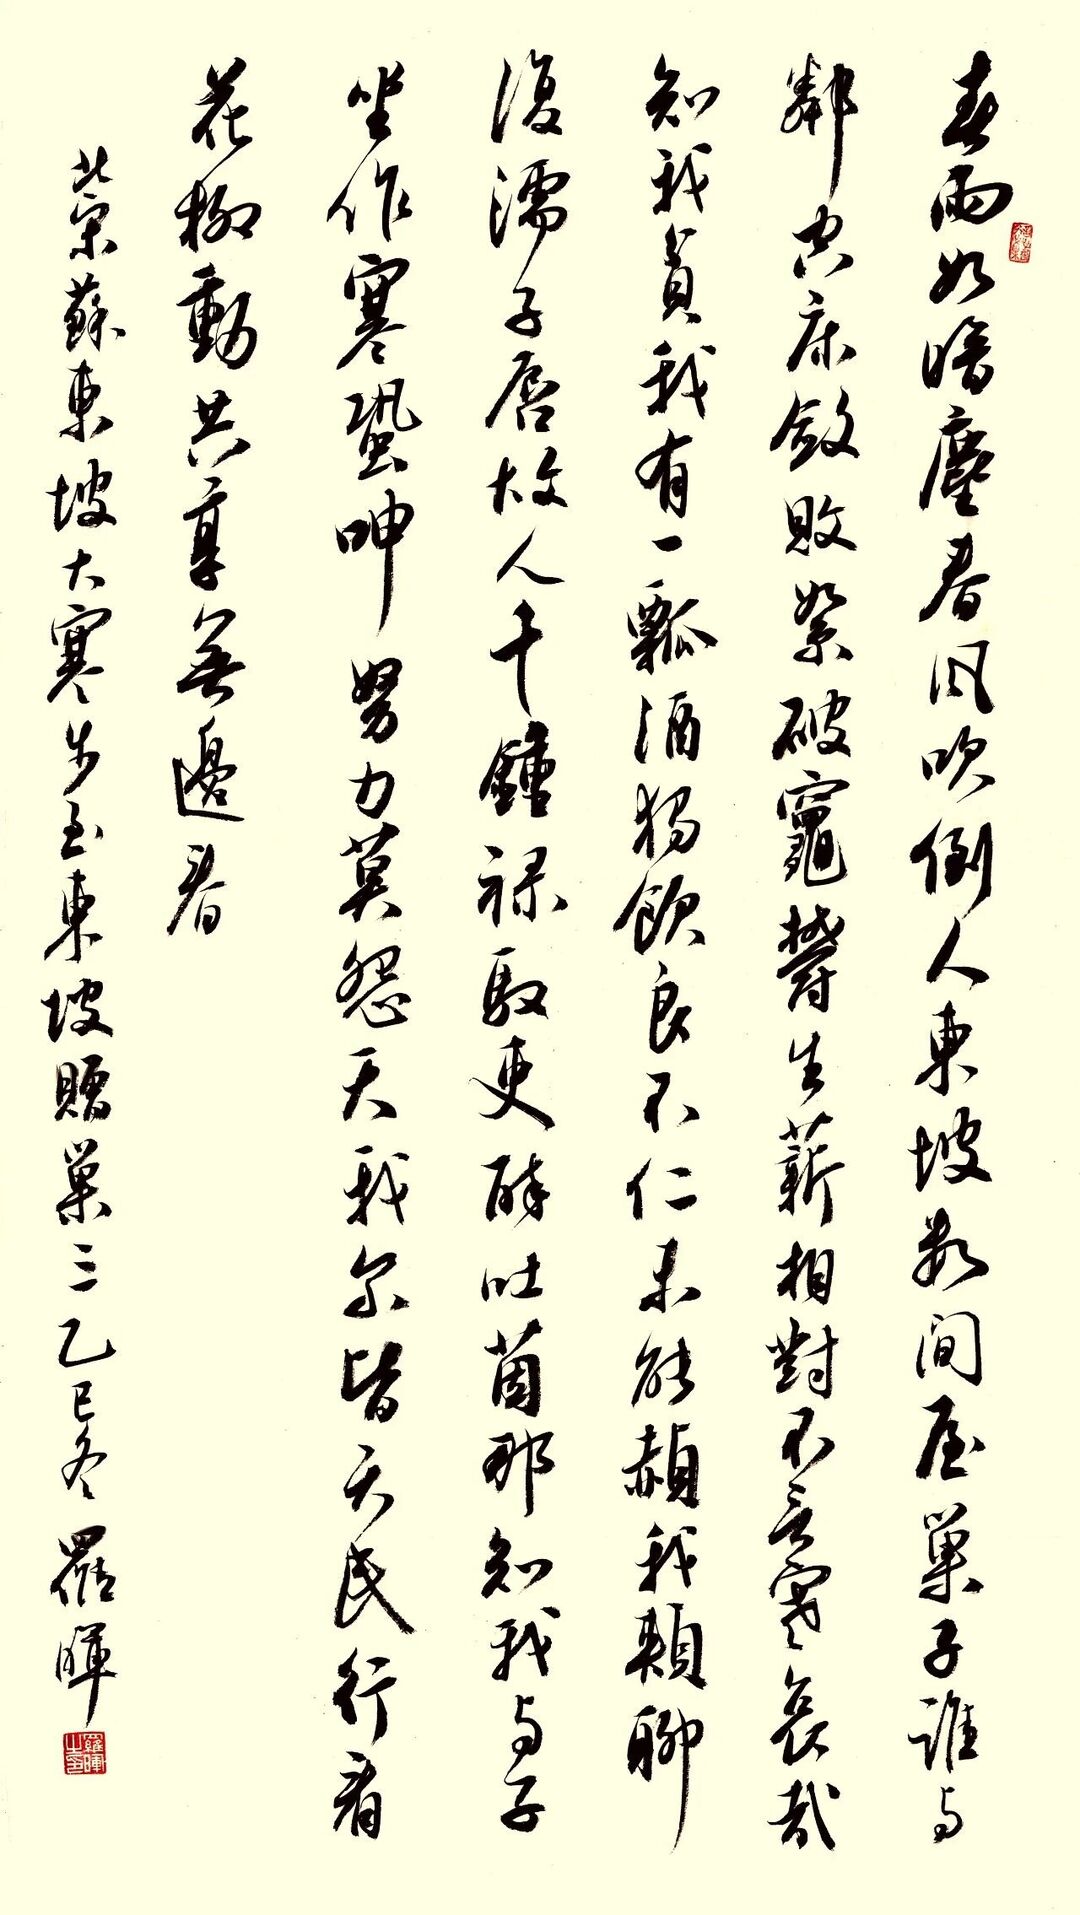 春雨如暗塵春風吹倒人東坡數間屋巢子誰与
鄰空床斂敗絮破竈鬱生薪相對不言寒哀哉
知我貧我有一瓢酒獨飲良不仁未能赬我頰聊
復濡子唇故人千鍾祿馭吏醉吐茵那知我与子
坐作寒蛩呻努力莫怨天我尔皆天民行看
花柳動共享無邊春
北宋蘇東坡大寒步至東坡贈巢三乙巳冬羅暉
羅暉之印